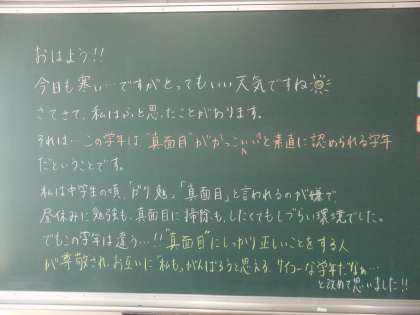 おはよう!!
今日も寒い…ですがとってもいい天気ですね
さてさて、私はふと思ったことがあります。
それは…この学年は"真面目"がかっこいいと素直に認められる学年
だということです。
私は中学生の頃、「がり勉」「真面目」と言われるのが嫌で
昼休みに勉強も、真面目に掃除も、したくてもしづらい環境でした。
でもこの学年は違う…!!"真面目"にしっかり正しいことをする人
が尊敬され、お互いに「私も」がんばろうと思える、サイコーな学年だなぁ…
と改めて思いました!!